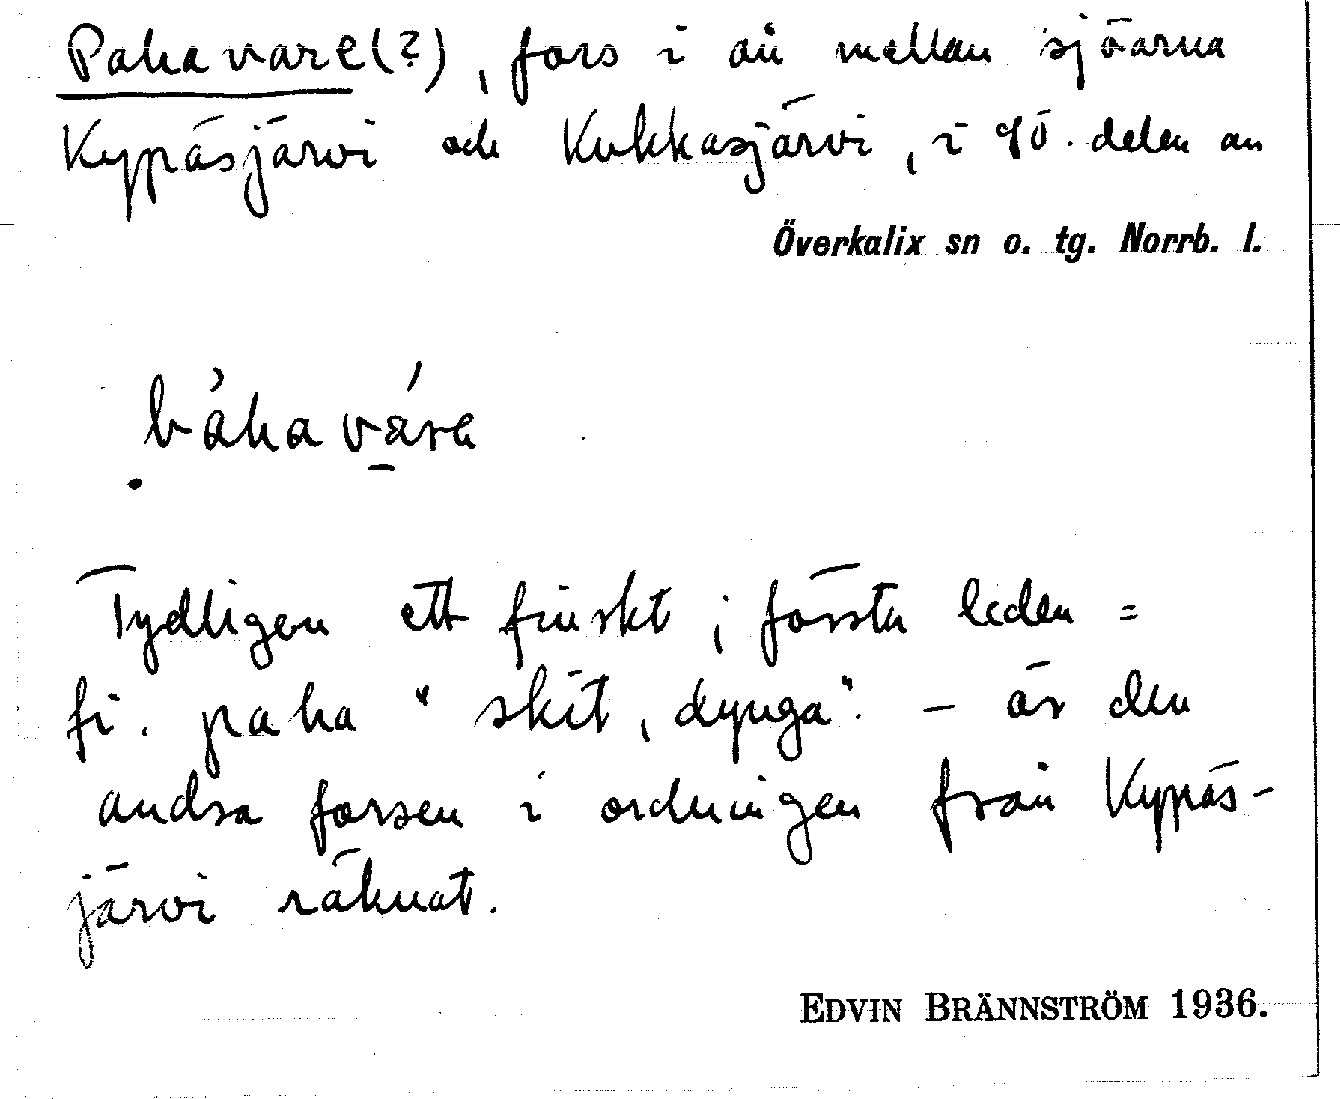 Pahavare(?), fors i ån mellan sjöarna
Kypäsjärvi och Kukkasjärvi, i sö. delen av
Överkalix sn o. tg. Norrb. l.
båhavára
Tydligen ett finskt ; första leden =
fi. paha "skit, dynga". – är den
andra forsen i ordningen från Kypäs-
järvi räknat.
EDVIN BRÄNNSTRÖM 1936.